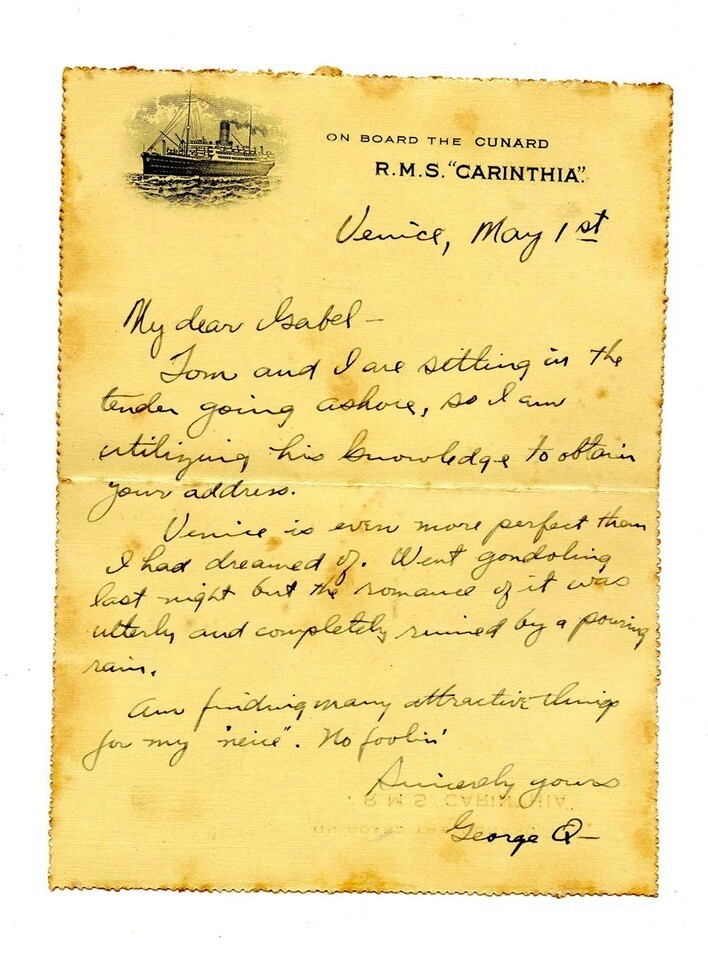 ON BOARD THE CUNARD
R.M.S. "CARINTHIA".
Venice, May 1st
My dear Isabel—
Tom and I are sitting in the
tender going ashore, so I am
utilizing his knowledge to obtain
your address.
Venice is even more perfect than
I had dreamed of. Went gondoling
last night but the romance of it was
utterly and completely ruined by a pouring
rain.
Am finding many attractive things
for my "neice". No foolin'
Sincerely yours
R.M.S. CARINTHIA
George Q—